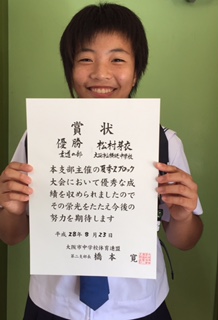 賞状
優勝 松村芽衣
柔道の部
本支部主催の夏季2ブロック
大会において優秀な成
績を収められましたので
その栄光をたたえ今後の
努力を期待します
平成28年9月23日
大阪市中学校体育連盟
第二支部長 橋本寛